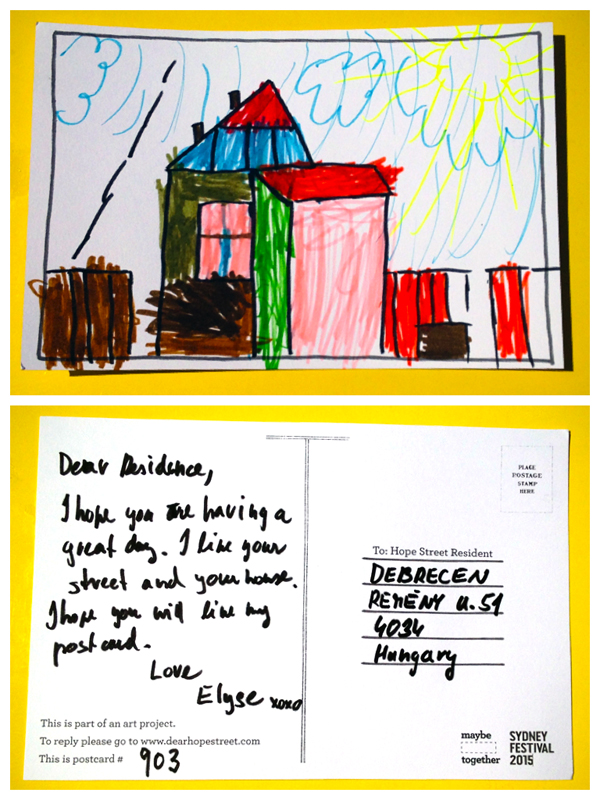 Dear Residence,
I hope you are having a
great day. I like your
street and your house.
I hope you will like my
postcard.
Love
Elyse xoxo
This is part of an art project.
To reply please go to www.dearhopestreet.com
This is postcard # 903
PLACE
POSTAGE
STAMP
HERE
To: Hope Street Resident
DEBRECEN
REMÉNY u.51
4034
Hungary
maybe
together
SYDNEY
FESTIVAL
2015